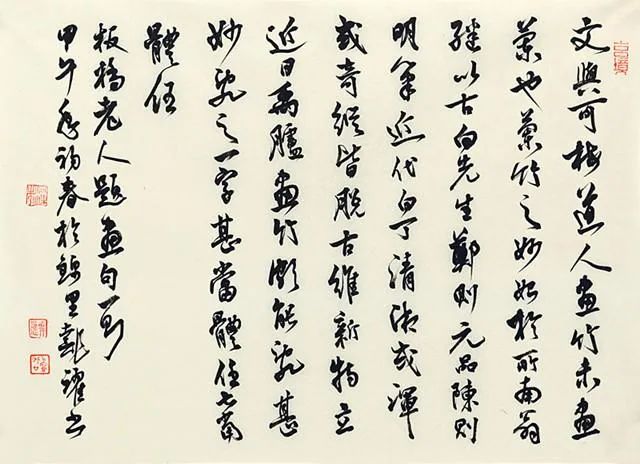 文與可梅道人畫竹未畫
蘭也蘭竹之妙始於所南翁
繼以古白先生鄭則元品陳則
明筆近代白丁清湘或渾
或奇縱皆脫古維新特立
近日禹臚畫竹頗能亂甚
妙亂之一字甚當體任甚當
體任
板橋老人題畫句一節
甲午年初春於錦里戴躍書